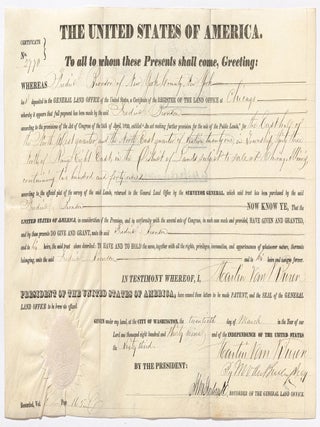 THE UNITED STATES OF AMERICA.
CERTIFICATE
No.
To all to whom these Presents shall come, Greeting:
WHEREAS of New York County, New York
ha deposited in the GENERAL LAND OFFICE of the United States, a Certificate of the REGISTER OF THE LAND OFFICE at Chicago
whereby it appears that full payment has been made by the said
according to the provisions of the Act of Congress of the 24th of April, 1820, entitled "An act making further provision for the sale of the Public Lands," for the East half of
the North West quarter and the North East quarter of Section twenty one, in Township forty three
North, of Range East, in the District of Lands subject to sale at Chicago, Illinois
containing two hundred and forty acres
according to the official plat of the survey of the said Lands, returned to the General Land Office by the SURVEYOR GENERAL, which said tract has been purchased by the said
NOW KNOW YE, That the
UNITED STATES OF AMERICA, in consideration of the Premises, and in conformity with the several acts of Congress, in such case made and provided, HAVE GIVEN AND GRANTED,
and by these presents DO GIVE AND GRANT, unto the said
and to his heirs, the said tract above described: TO HAVE AND TO HOLD the same, together with all the rights, privileges, immunities, and appurtenances of whatsoever nature, thereunto
belonging, unto the said and to his heirs and assigns forever.
IN TESTIMONY WHEREOF, I, Martin Van Buren
PRESIDENT OF THE UNITED STATES OF AMERICA, have caused these Letters to be made PATENT, and the SEAL of the GENERAL
LAND OFFICE to be hereunto affixed.
GIVEN under my hand, at the CITY OF WASHINGTON, the twentieth day of March in the Year of our
Lord one thousand eight hundred and thirty nine and of the INDEPENDENCE OF THE UNITED STATES
the sixty third
BY THE PRESIDENT: Martin Van Buren
By
RECORDER OF THE GENERAL LAND OFFICE.
Recorded, Vol. Page